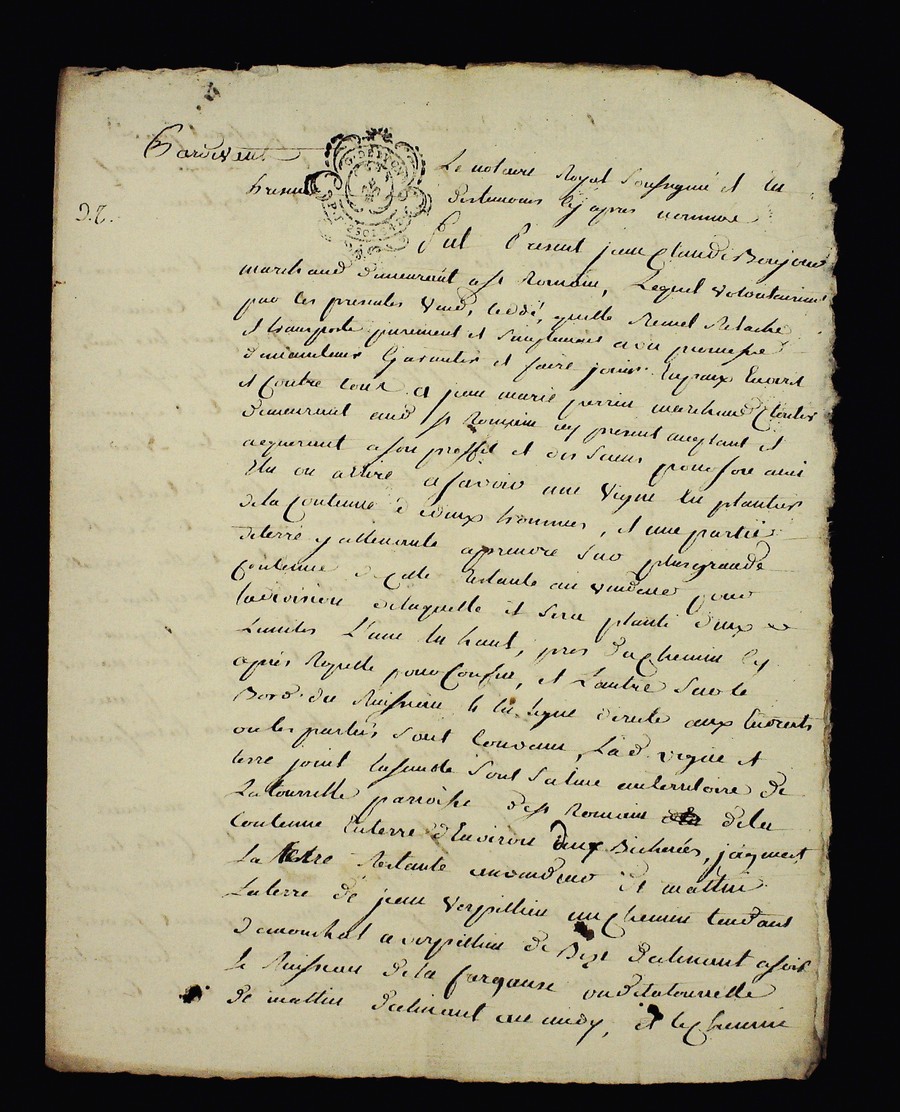 Pardevant
Le notaire Royal Soussigné et les
tesmoins cy après nommés
D. 2.
G. DE LYON
Fut Present jean Claude
marchand demeurant a st Romain, Lequel volontairement
par les presentes Vend, Cedde, quitte Remet Relache
et transporte purement et Simplement avec promesse
de maintenir Garantir et faire jouir Enpaix Envers
et Contre tous a jean marie perrin marchand
demeurant aud st Romain cy present acceptant et
acquerant a son proffit et des Siens pour son ami
Elu ou a Elire asavoir une Vigne
de la Contenue de deux hommes, et une partie
de terre y attenante aprendre Sur plus grande
Contenue de Celle Restante au Vendeur pour
la division de laquelle il Sera planté deux
Limites L'une en haut, pres du Chemin cy
après Rapellé pour Confin, et L'autre Sur le
Bord du Ruisseau en ligne directe aux Endroits
ou les parties Sont Convenu, Lad. vigne et
terre joint ensemble Sont Situé au territoire de
La tourrette parroisse de st Romain de la
Contenue Enterre d'Environ deux Bicherées, joignent
La terre Restante au vendeur de mattin
La terre de jean Verpillieu un Chemin tendant
de a verpillieu de Bize declinant a soir
le Ruisseau de la ou de la tourrette
de mattin declinant au midy, et le Chemin